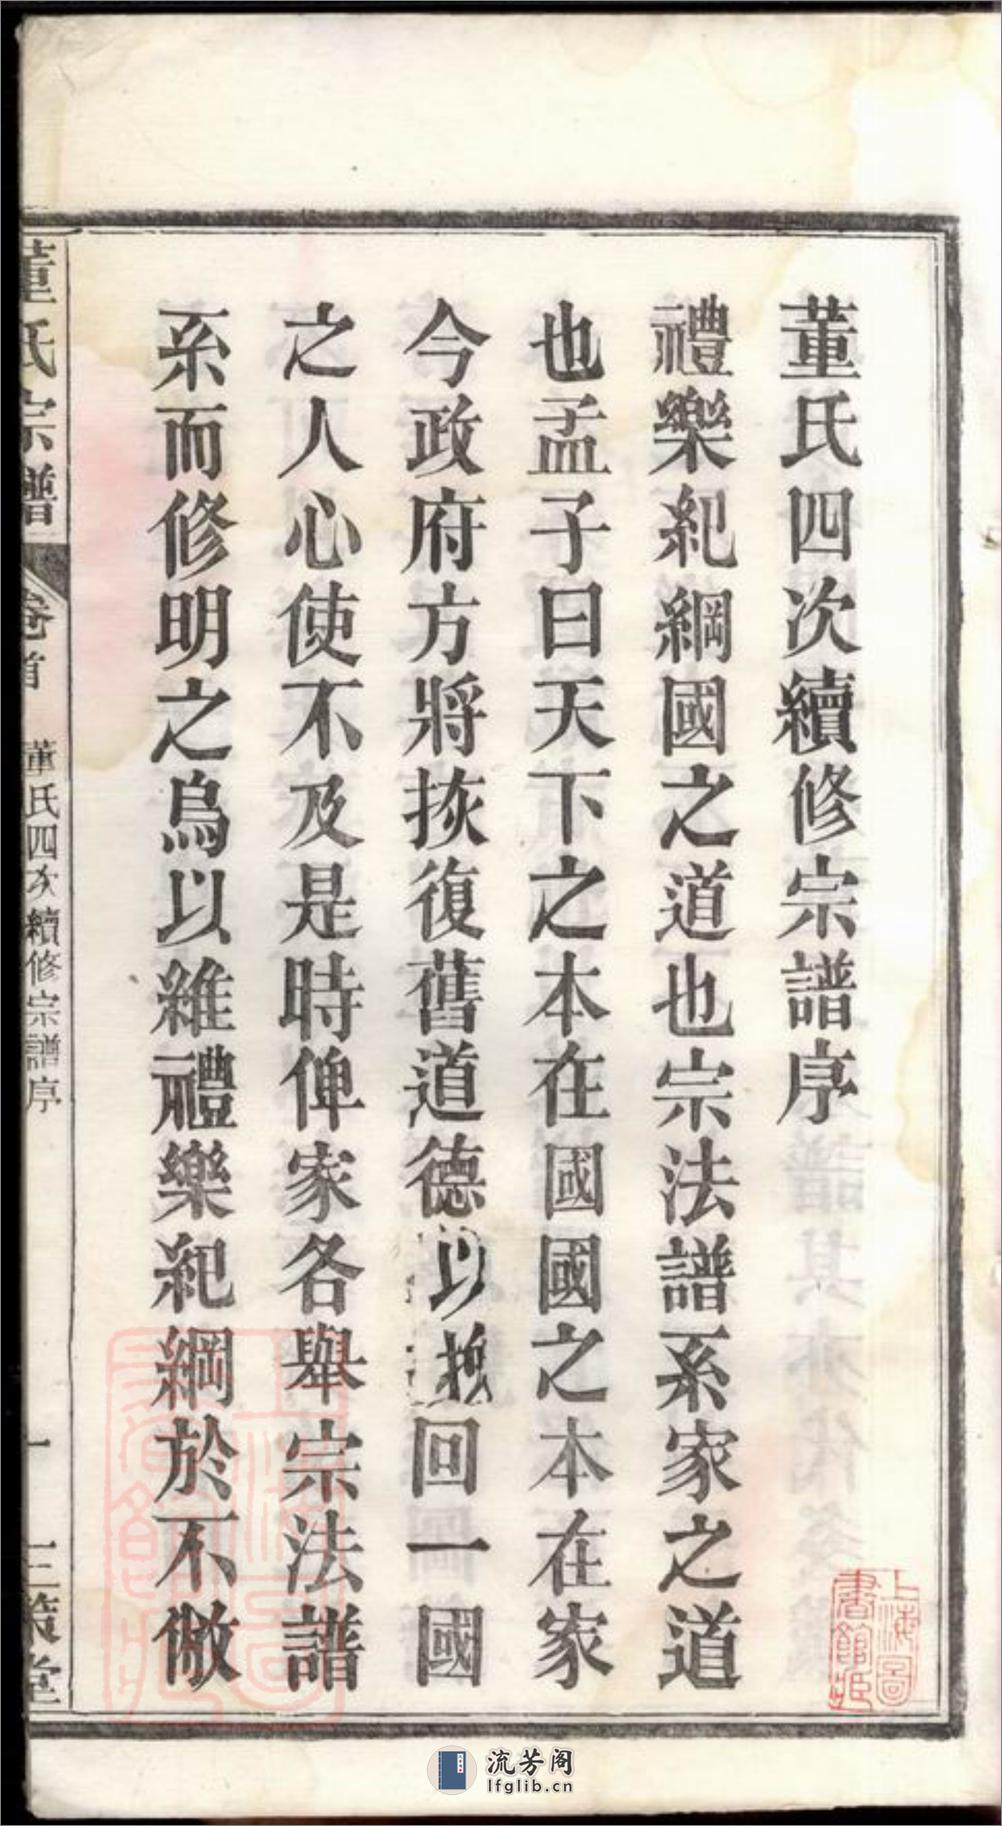 董氏四次續修宗譜序
禮樂紀綱國之道也宗法譜系家之道
也孟子曰天下之本在國國之本在家
今政府方將恢復舊道德以挽回一國
之人心使不及是時俾家各舉宗法譜
系而修明之烏以維禮樂紀綱於不敝
董氏宗譜
卷首
董氏四次續修宗譜序
一
三策堂
上海圖
書館藏
流芳阁
lfglib.cn